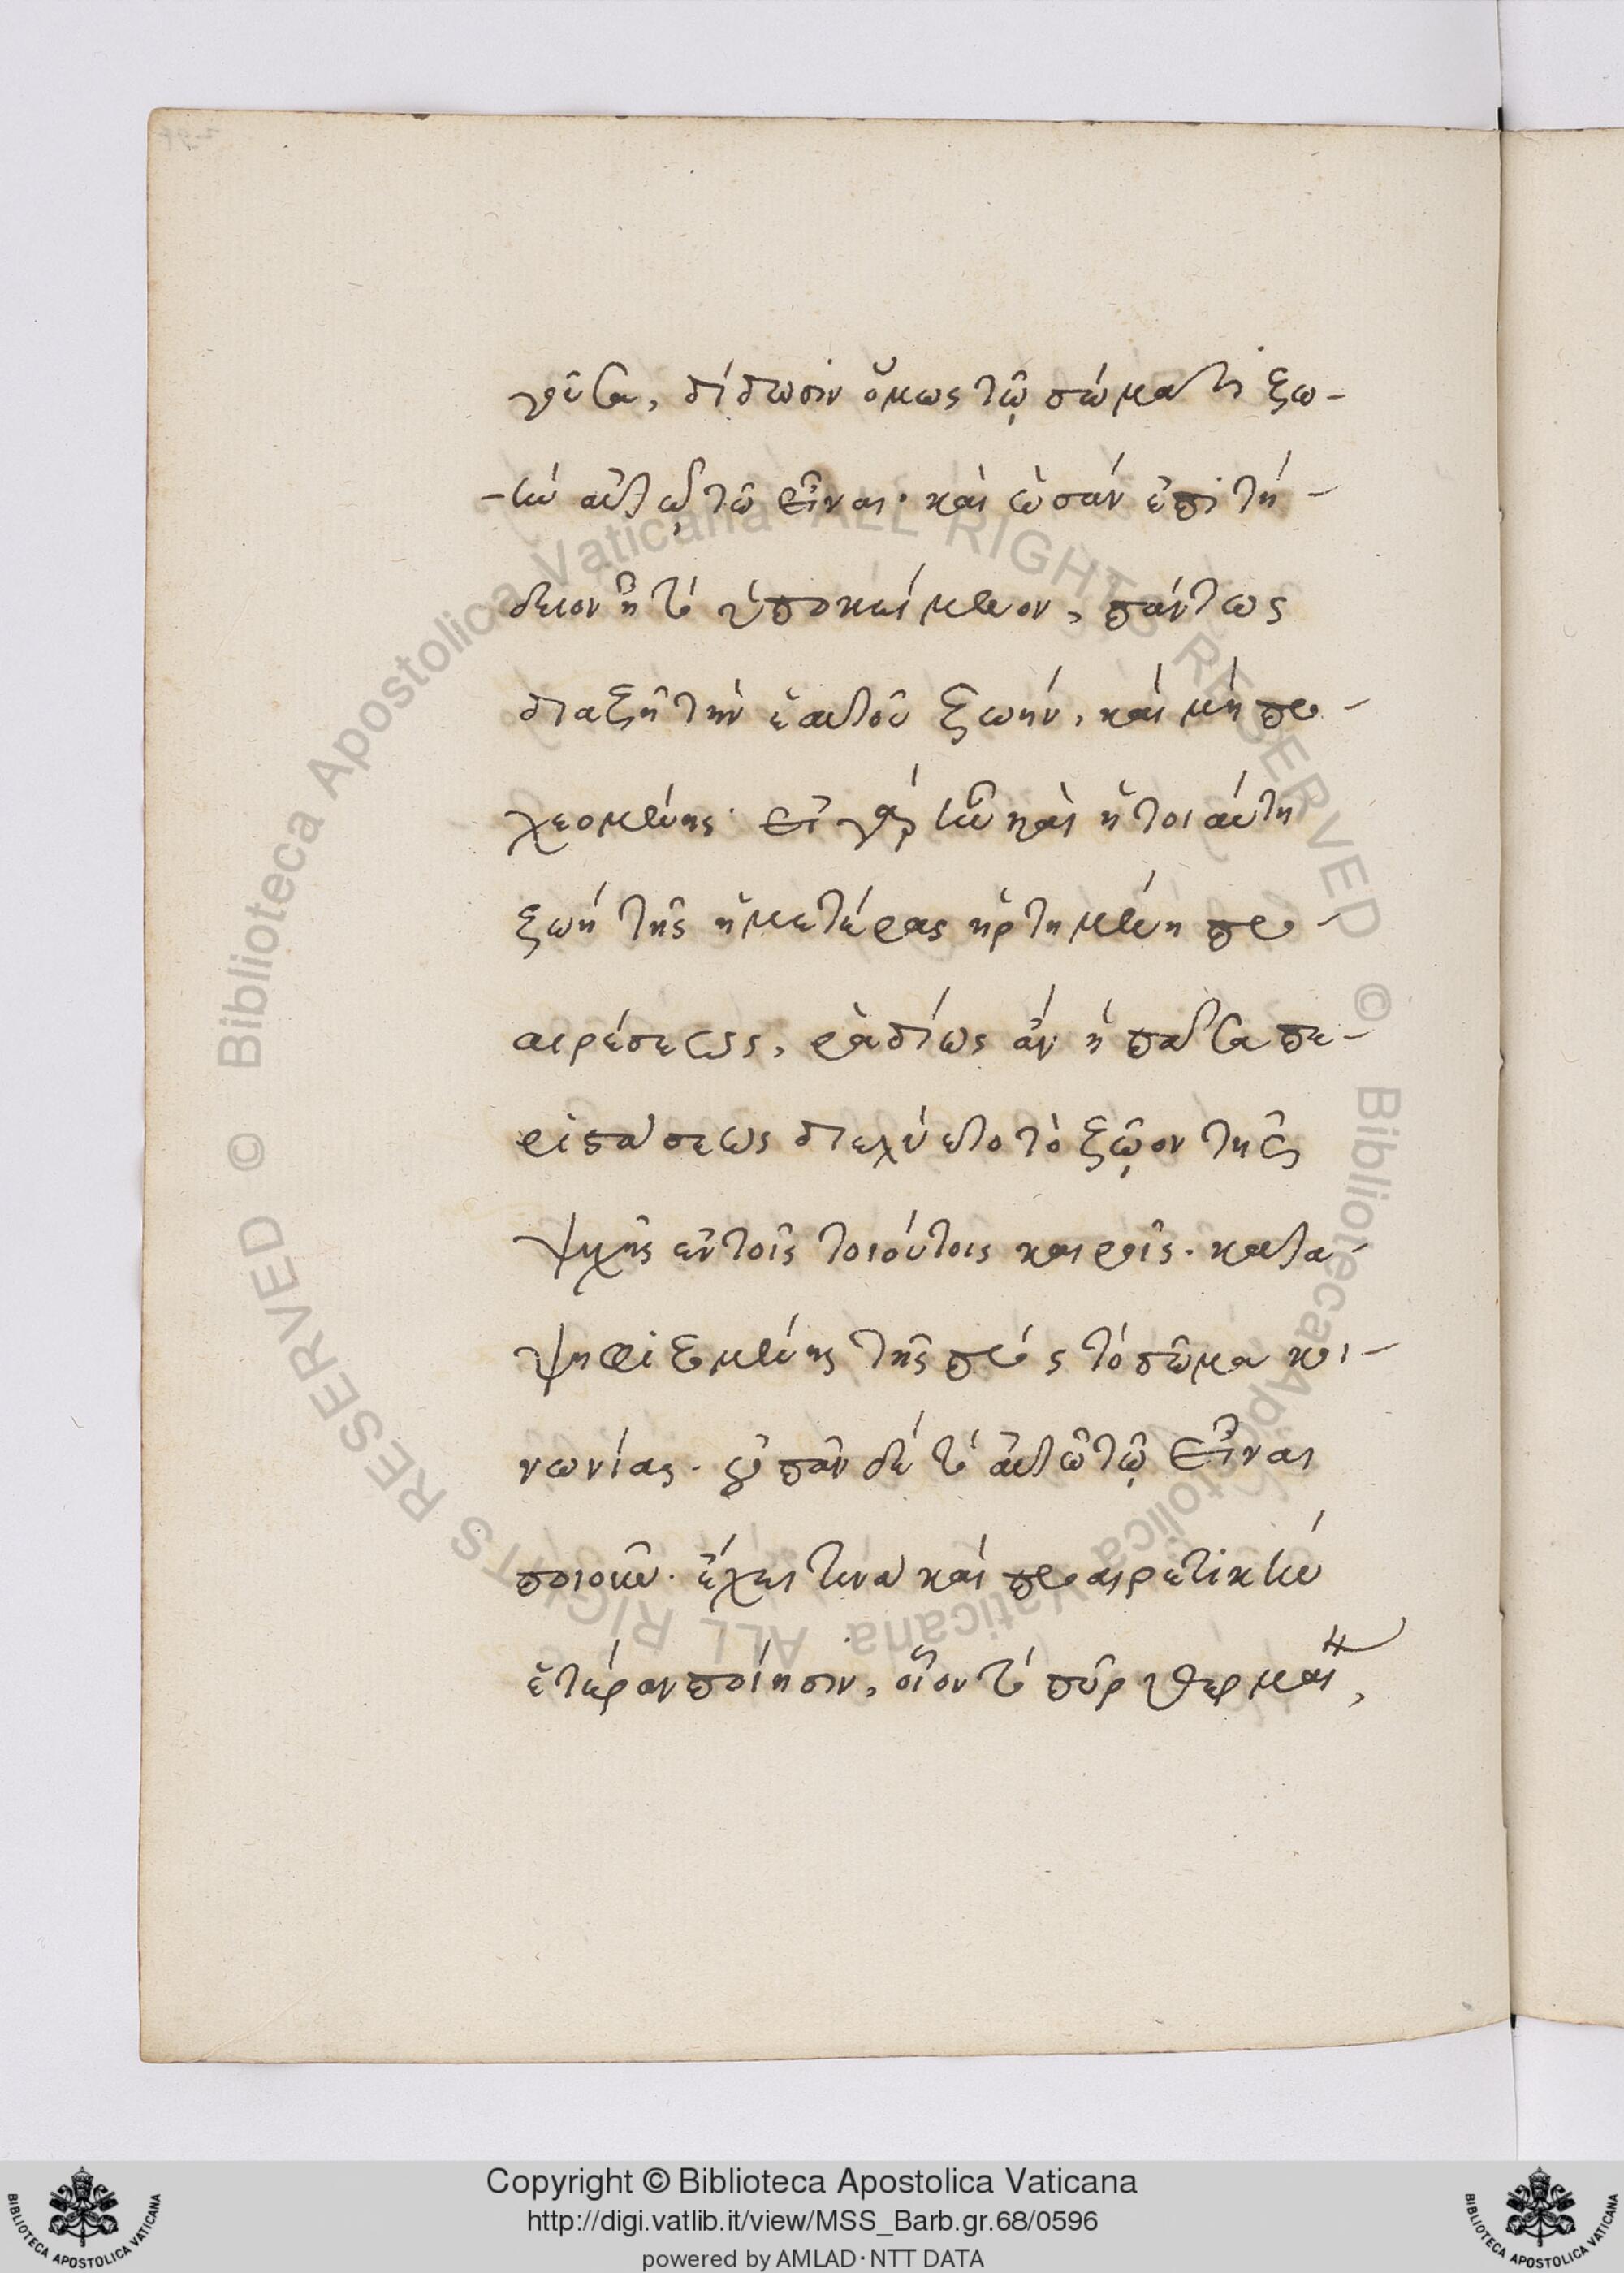 γοῦσα, δίδωσιν ὅμως τῷ σώματι ζω-
-ὴν αὐτῷ τῷ εἶναι· καὶ ὡσάν ἐπιτή-
δειον ᾖ τὸ ὑποκείμενον, πάντως
διαζῇ τὴν ἑαυτοῦ ζωήν, καὶ μὴ προ-
χεομένης· εἰ γὰρ ἦν καὶ ἡ τοιαύτη
ζωή τῆς ἡμετέρας ἠρτημένη προ-
αιρέσεως, ῥαδίως ἂν ἡ πᾶσα πε-
ριστάσεως διελύετο τὸ ζῷον τῆς
ψυχῆς ἐν τοῖς τοιούτοις καιροῖς· κατα-
ψηφιζομένης τῆς πρός τό σῶμα κοι-
νωνίας· οὐ πᾶν δέ τὸ αὐτῷ τῷ εἶναι
ποιοῦν· ἔχει τινα καί προαιρετικήν
ἑτέραν ποίησιν, οἷον τό πῦρ θερμαί,
Copyright © Biblioteca Apostolica Vaticana
http://digi.vatlib.it/view/MSS_Barb.gr.68/0596
powered by AMLAD·NTT DATA